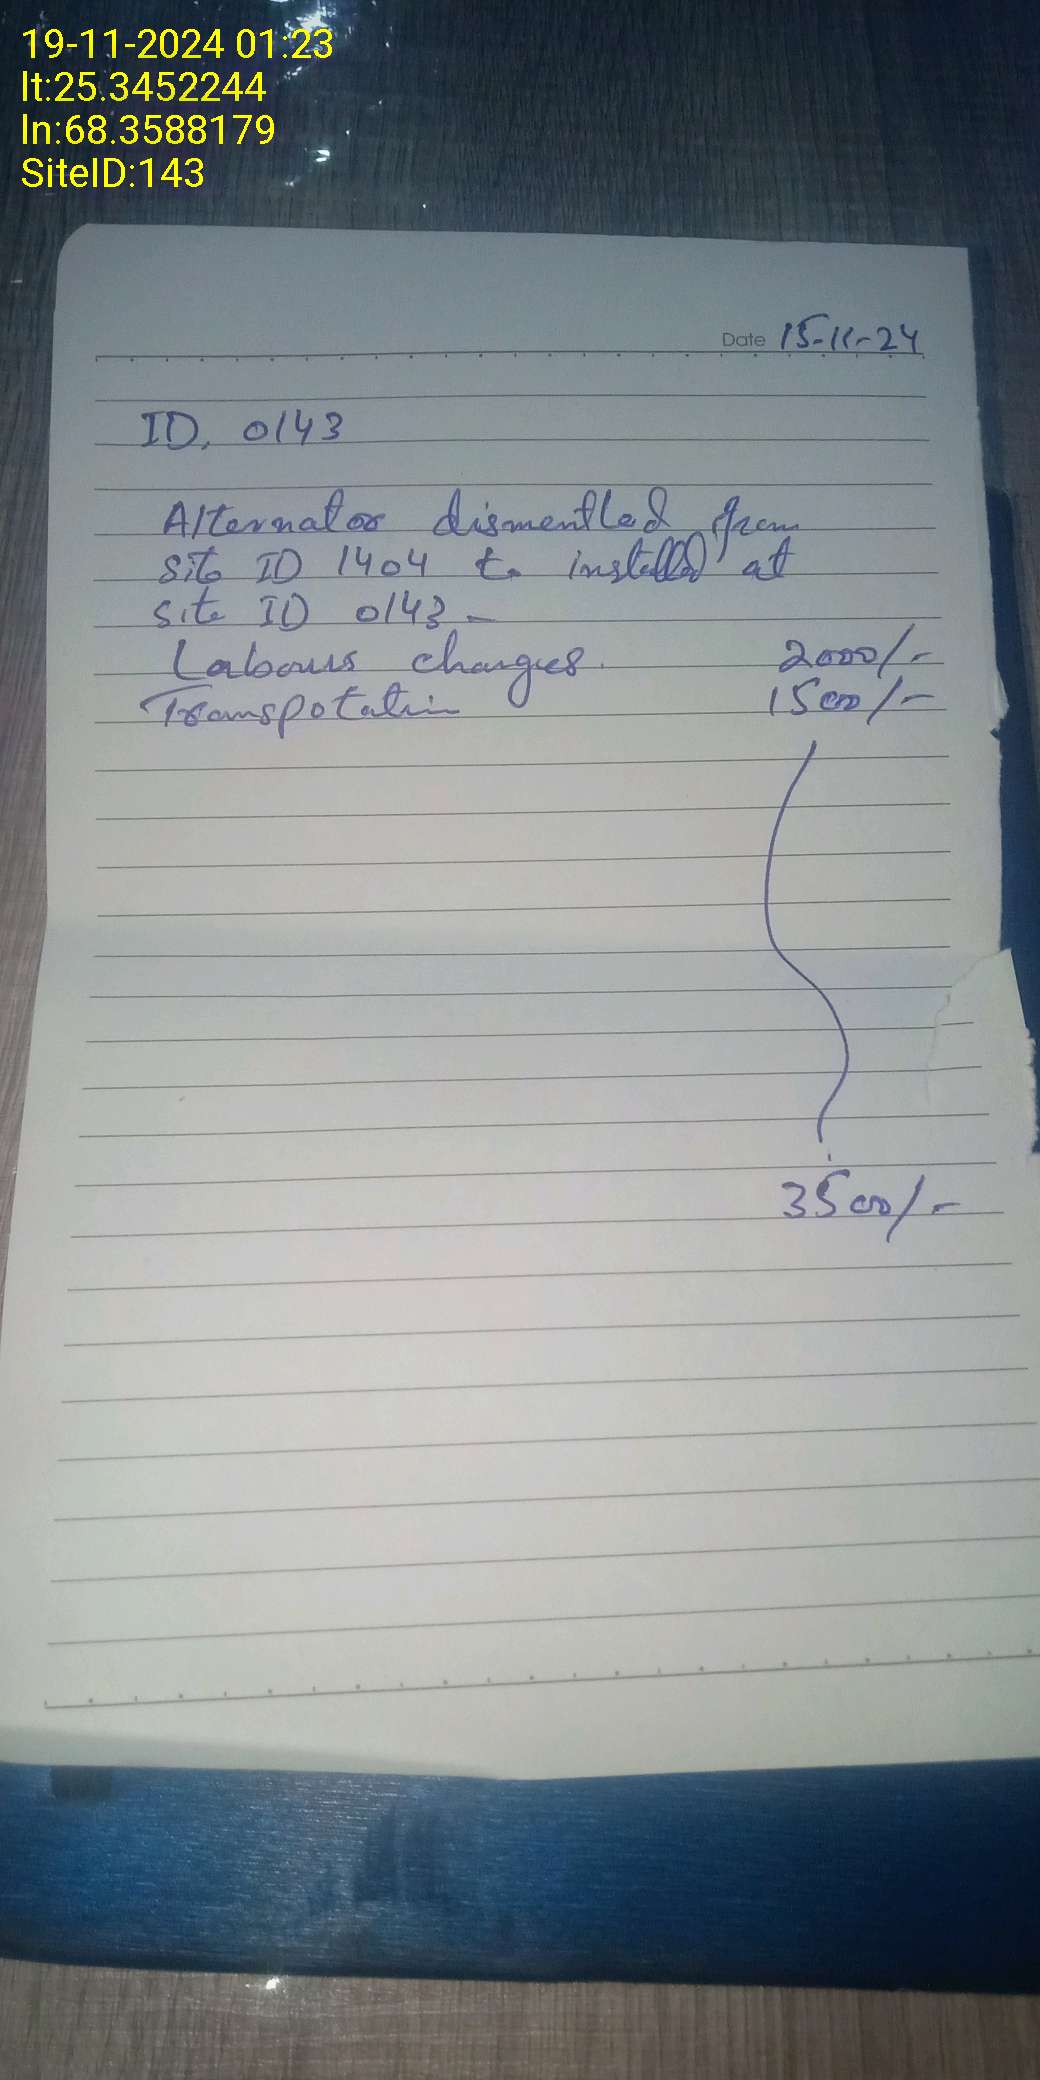 19-11-2024 01:23
lt:25.3452244
ln:68.3588179
SiteID:143
Date 15-11-24
ID. 0143
Alternator dismentled from
site ID 1404 to installed at
site ID 0143-
Labours charges. 2000/-
Transpotation 1500/-
3500/-